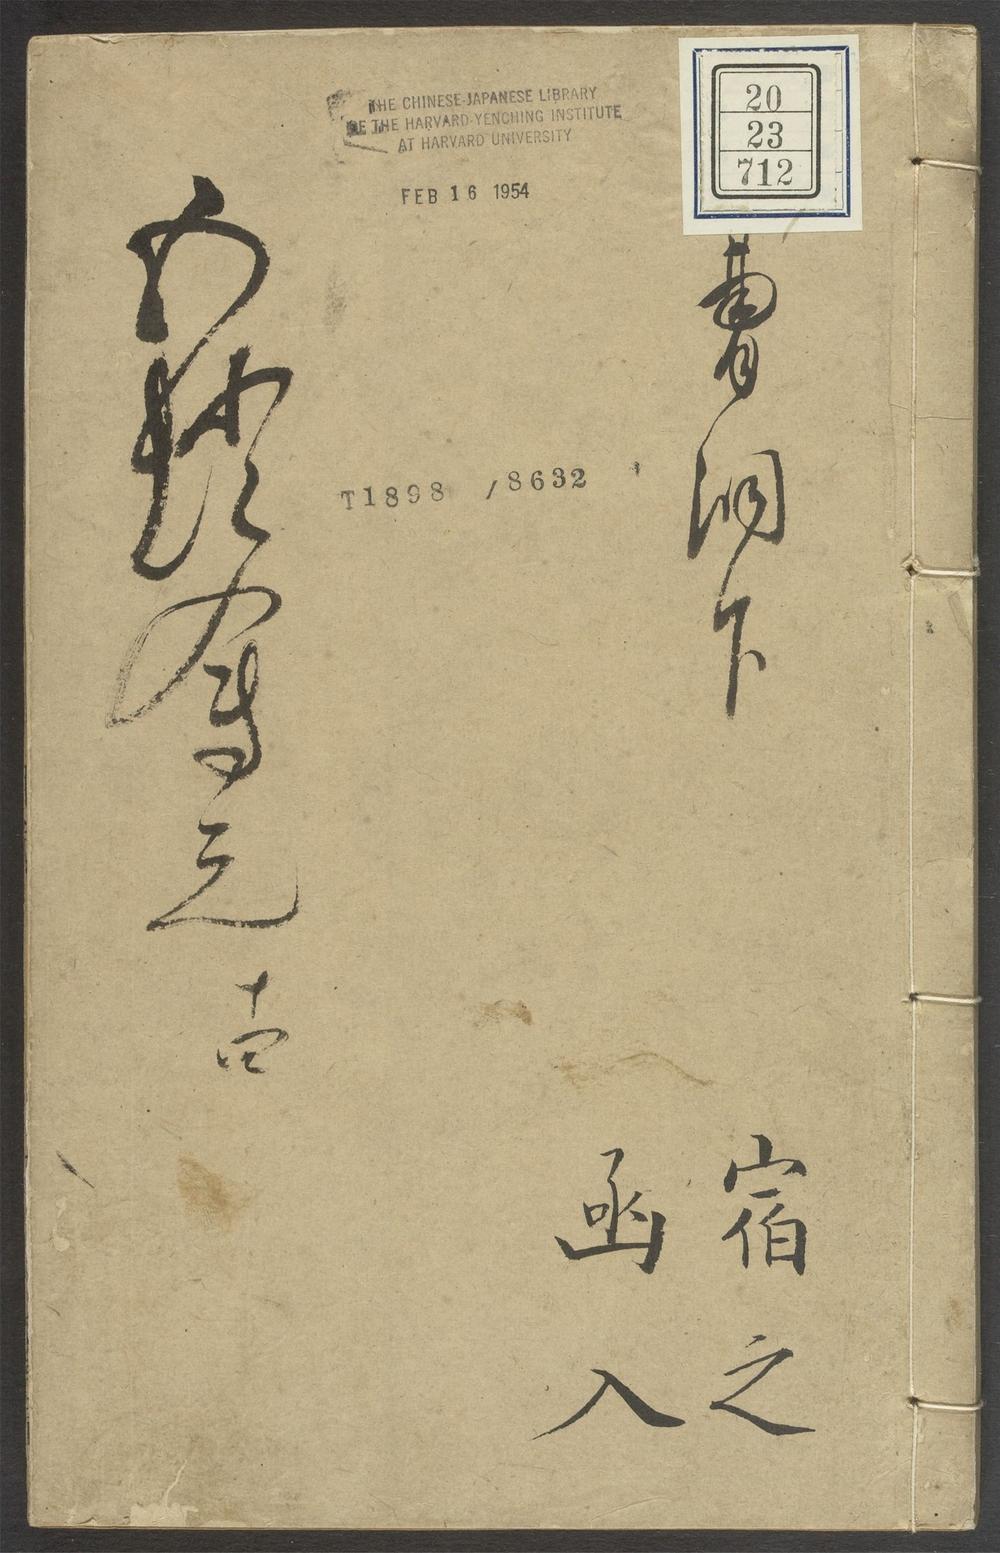 20
23
712
THE CHINESE-JAPANESE LIBRARY
OF THE HARVARD-YENCHING INSTITUTE
AT HARVARD UNIVERSITY
FEB 16 1954
曹洞下
宿之
函入
T1898 /8632
五燈會元 十四